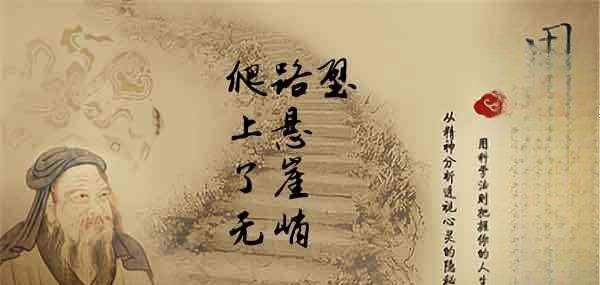 爬上了无
路悬崖峭
壁
用科学法则把握你的人生
从精神分析透视心灵的隐秘